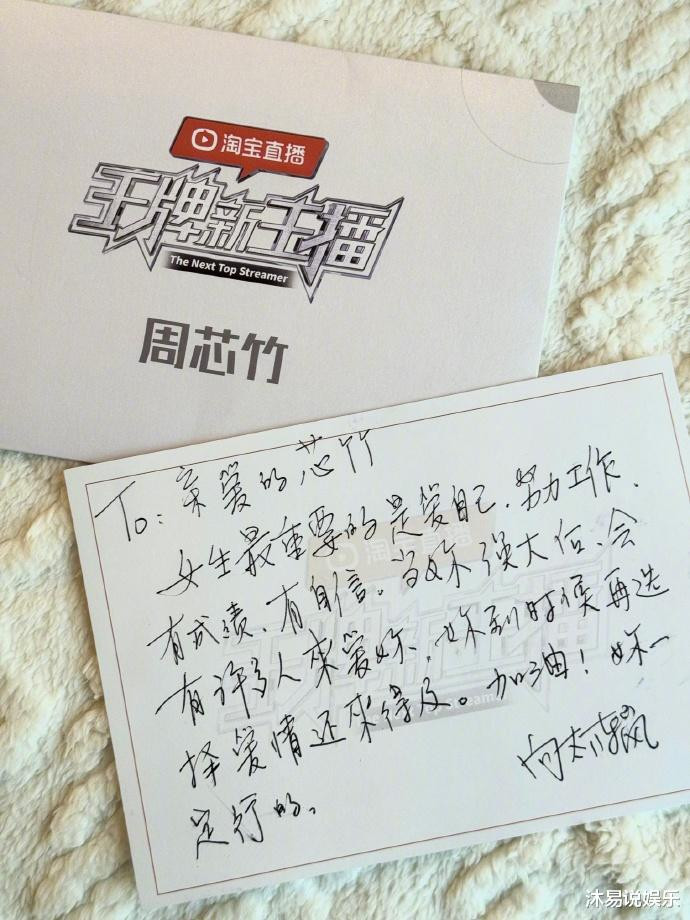 淘宝直播
王牌新主播
The Next Top Streamer
周芯竹
To: 亲爱的芯竹
女生最重要的是爱自己.努力工作、
有成绩、有自信。当妳强大后、会
有许多人来爱妳，妳到时候再选
择爱情还来得及。加油！妳一
定行的。
向太
淘宝直播
王牌新主播
沐易说娱乐